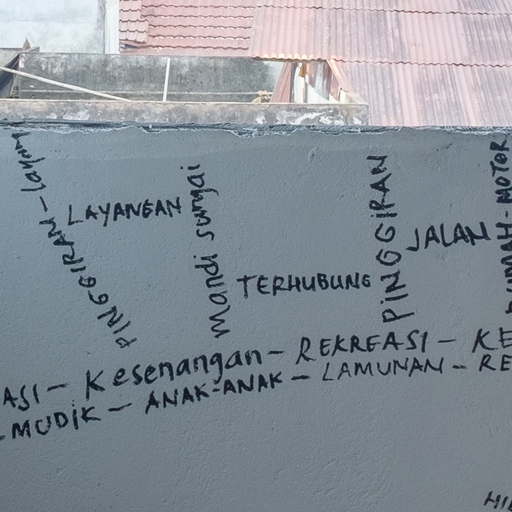 PINGGIRAN - layan
LAYANGAN
mandi sungai
TERHUBUNG
PINGGIRAN
JALAN
RUMAH - MOTOR
ASI - Kesenangan - REKREASI - KE
- MUDIK - ANAK-ANAK - LAMUNAN - RE